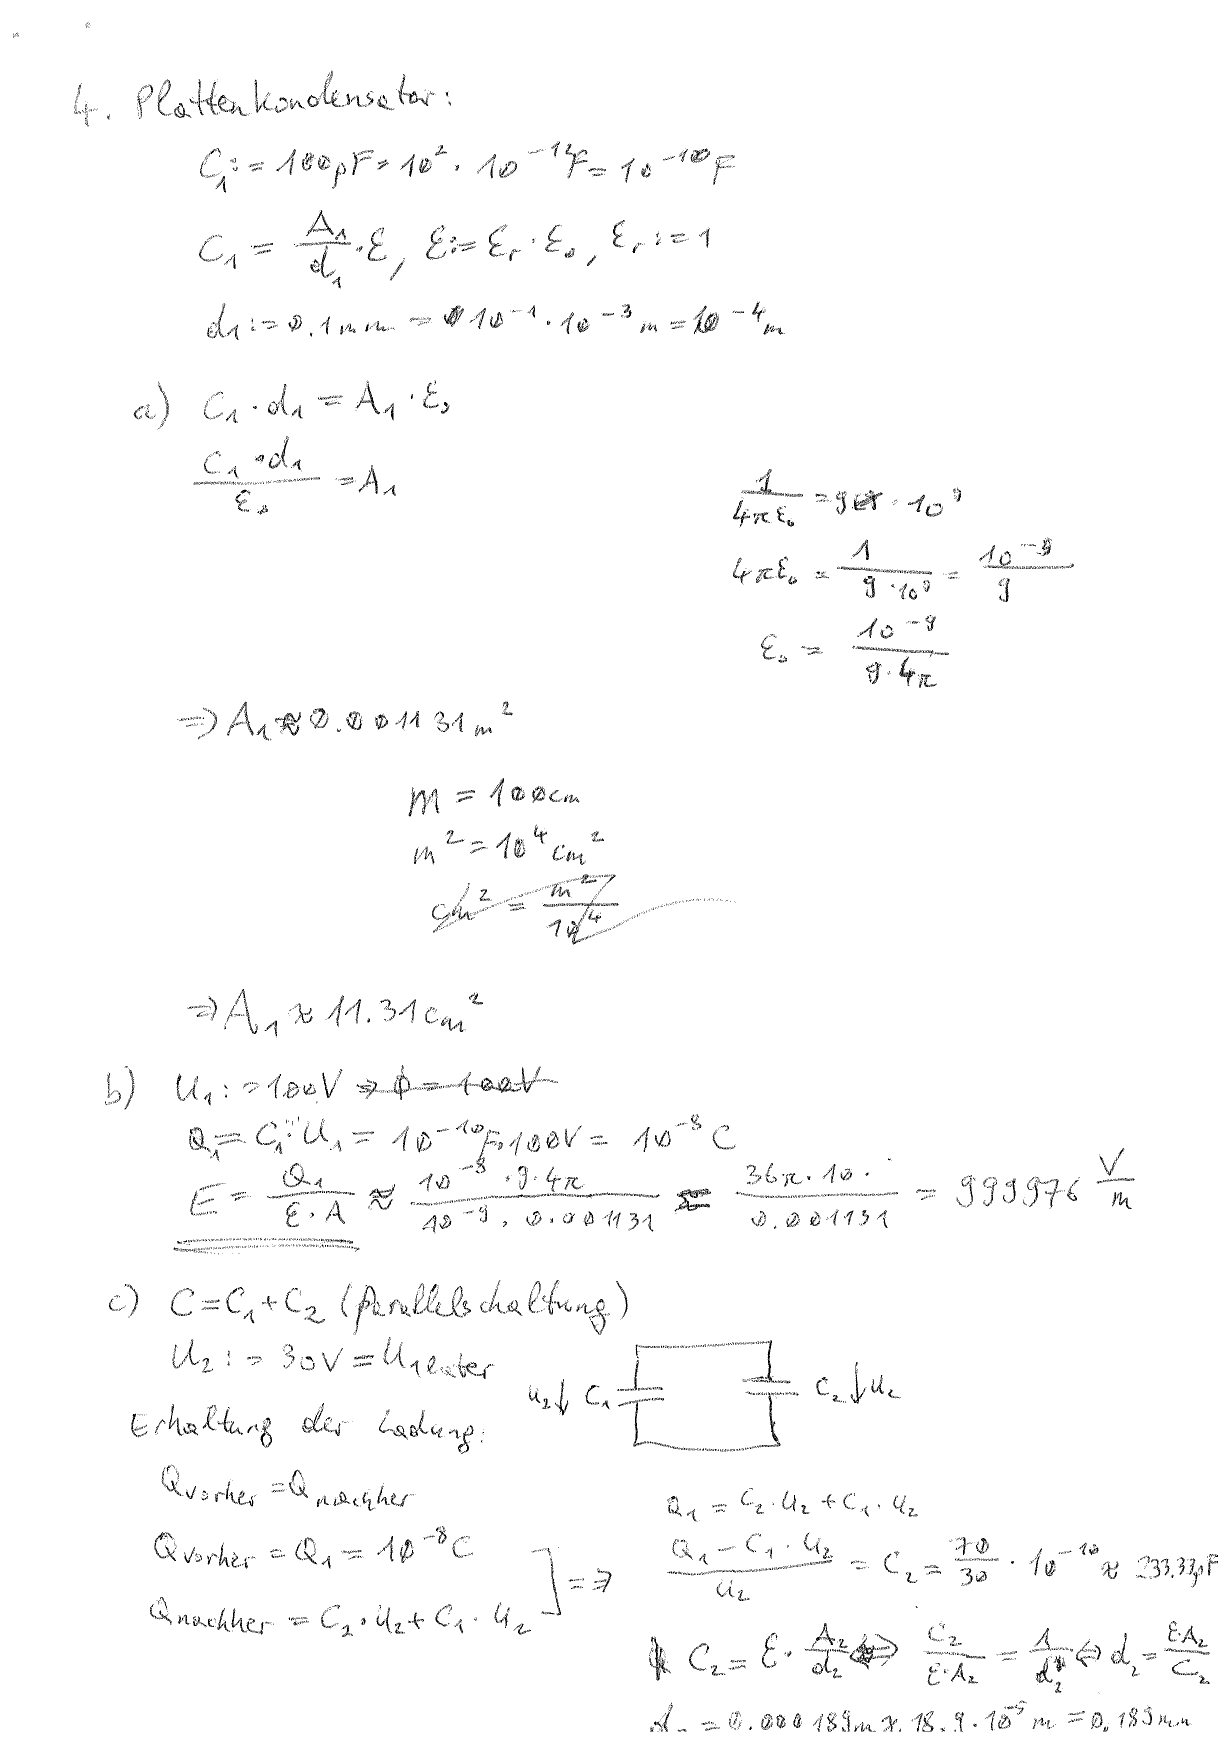 4. Plattenkondensator:
C₁:=100pF=10²·10⁻¹²F=10⁻¹⁰F
C₁ = A₁/d₁·ε, ε:=εᵣ·ε₀, εᵣ:=1
d₁:=0.1mm=10⁻¹·10⁻³m=10⁻⁴m
a) C₁·d₁=A₁·ε₀
C₁·d₁/ε₀=A₁
1/4πε₀=9·10⁹
4πε₀ = 1/9·10⁹ = 10⁻⁹/9
ε₀ = 10⁻⁹/9·4π
⇒A₁≈0.001131m²
m = 100cm
m²=10⁴cm²
cm²=m²/10⁴
⇒A₁≈11.31cm²
b) U₁:=100V ⇒ ϕ=100V
Q₁=C₁·U₁=10⁻¹⁰F·100V=10⁻⁸C
E = Q₁/ε·A ≈ 10⁻⁸·9·4π/10⁻⁹·0.001131 = 36π·10·/0.001131 = 999976 V/m
c) C=C₁+C₂ (Parallelschaltung)
U₂:=30V=U₁später
U₂↓ C₁ C₂↓U₂
Erhaltung der Ladung:
Qvorher=Qnachher
Qvorher=Q₁=10⁻⁸C
Qnachher=C₂·U₂+C₁·U₂ ] =⇒
Q₁=C₂·U₂+C₁·U₂
Q₁-C₁·U₂/U₂ = C₂ = 70/30·10⁻¹⁰ ≈ 233.33pF
C₂=ε·A₂/d₂ ⇔ C₂/ε·A₂ = 1/d₂ ⇔ d₂=εA₂/C₂
=0.000189m≈18.9·10⁻⁵m=0.189mm